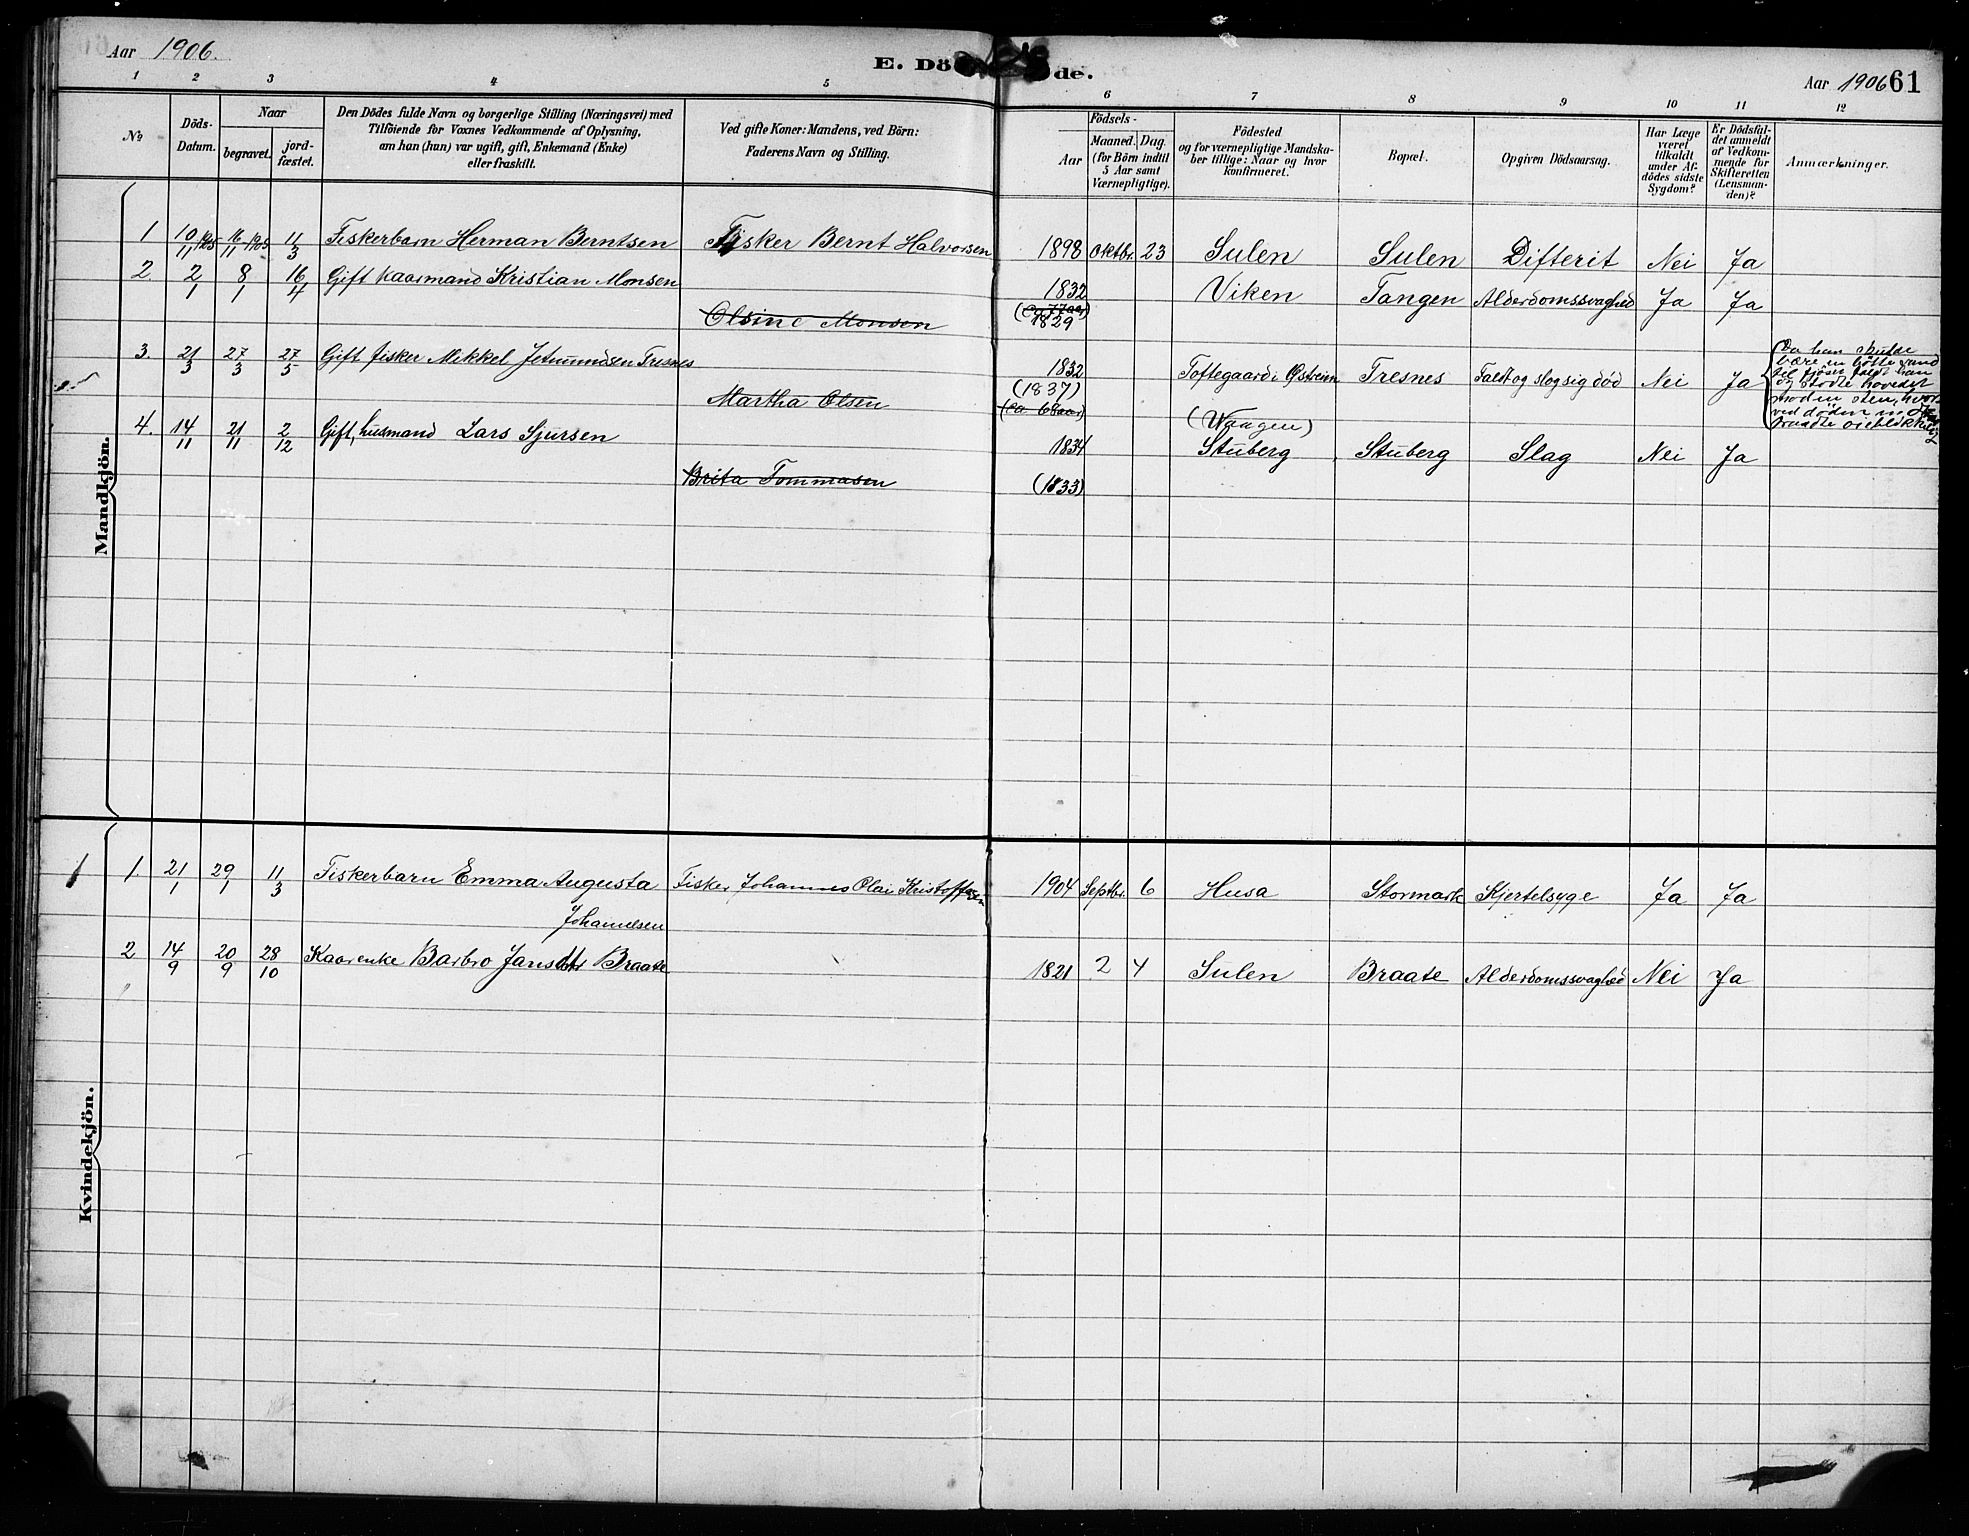 Aar 1906.
E. Dö de.
Aar 1906 61
1 2 3 4 5 6 7 8 9 10 11 12
No
Döds-Datum.
Naar
begravet.
jordfæstet.
Den Dödes fulde Navn og borgerlige Stilling (Næringsvei) med
Tilföiende for Voxnes Vedkommende af Oplysning,
om han (hun) var ugift, gift, Enkemand (Enke)
eller fraskilt.
Ved gifte Koner: Mandens, ved Börn:
Faderens Navn og Stilling.
Födsels-
Aar
Maaned. Dag.
(for Börn indtil
5 Aar samt
Værnepligtige).
Födested
og for værnepligtige Mandska-
ber tillige: Naar og hvor
konfirmeret.
Bopæl.
Opgiven Dödsaarsag.
Har Læge
været
tilkaldt
under Af-
dödes sidste
Sygdom?
Er Dödsfal-
det anmeldt
af Vedkom-
mende for
Skifteretten
(Lensman-
den)?
Anmærkninger.
Mandkjön.
1 10/11 1905 16/11 1905 11/3 Fiskerbarn Herman Berntsen Fisker Bernt Halvorsen 1898 Oktbr. 23 Sulen Sulen Difterit Nei Ja
2. 2/1 8/1 16/4 Gift kaarmand Kristian Monsen 1832 Viken Tangen Alderdomssvaghed Ja Ja
Olsine Monsen 1829
3. 21/3 27/3 27/5 Gift fisker Mikkel Jetmundsen Tresnes 1832 Toftegaard i Østreim Tresnes Faldt og slog sig død Nei Ja
Martha Olsen (1837)
(ca 68 aar)
Da han skulde
bære en bøtte vand
til fjøset faldt han
og stødte hovedet
mod en sten, hvor
ved døden
oieblikkelig
4. 14/11 21/11 2/12 Gift, husmand Lars Sjursen 1834 (Waagen) Stuberg Stuberg Slag Nei Ja
Brita Tommasen (1833)
Kvindekjön.
1 1. 21/1 29/1 11/3 Fiskerbarn Emma Augusta Fisker Johannes Olai Kristoffersen 1904 Septbr. 6 Husa Stormark Kjertelsyge Ja Ja
Johannesen
2 14/9 20/9 28/10 Kaarenke Barbro Jansdtr Braate 1821 2 4 Sulen Braate Alderdomssvaghed Nei Ja